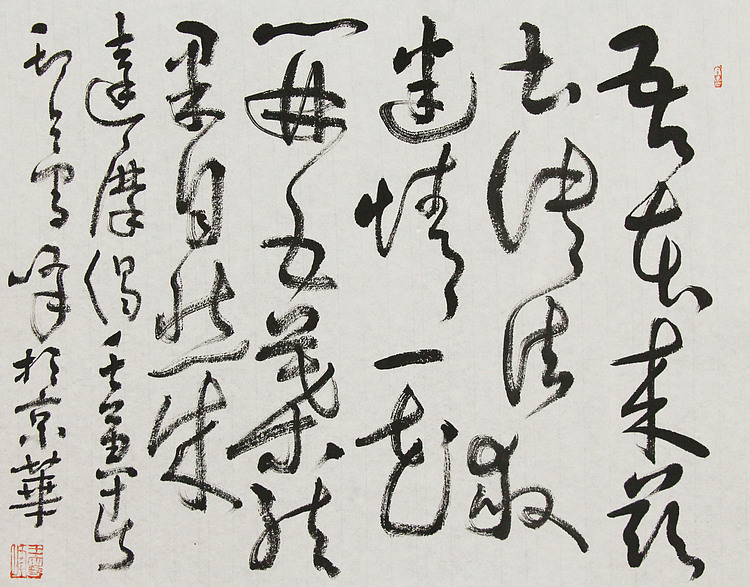 吾本来兹
土傳法救
迷情一花
開五葉結
果自然成
達摩偈
雪峰於京華